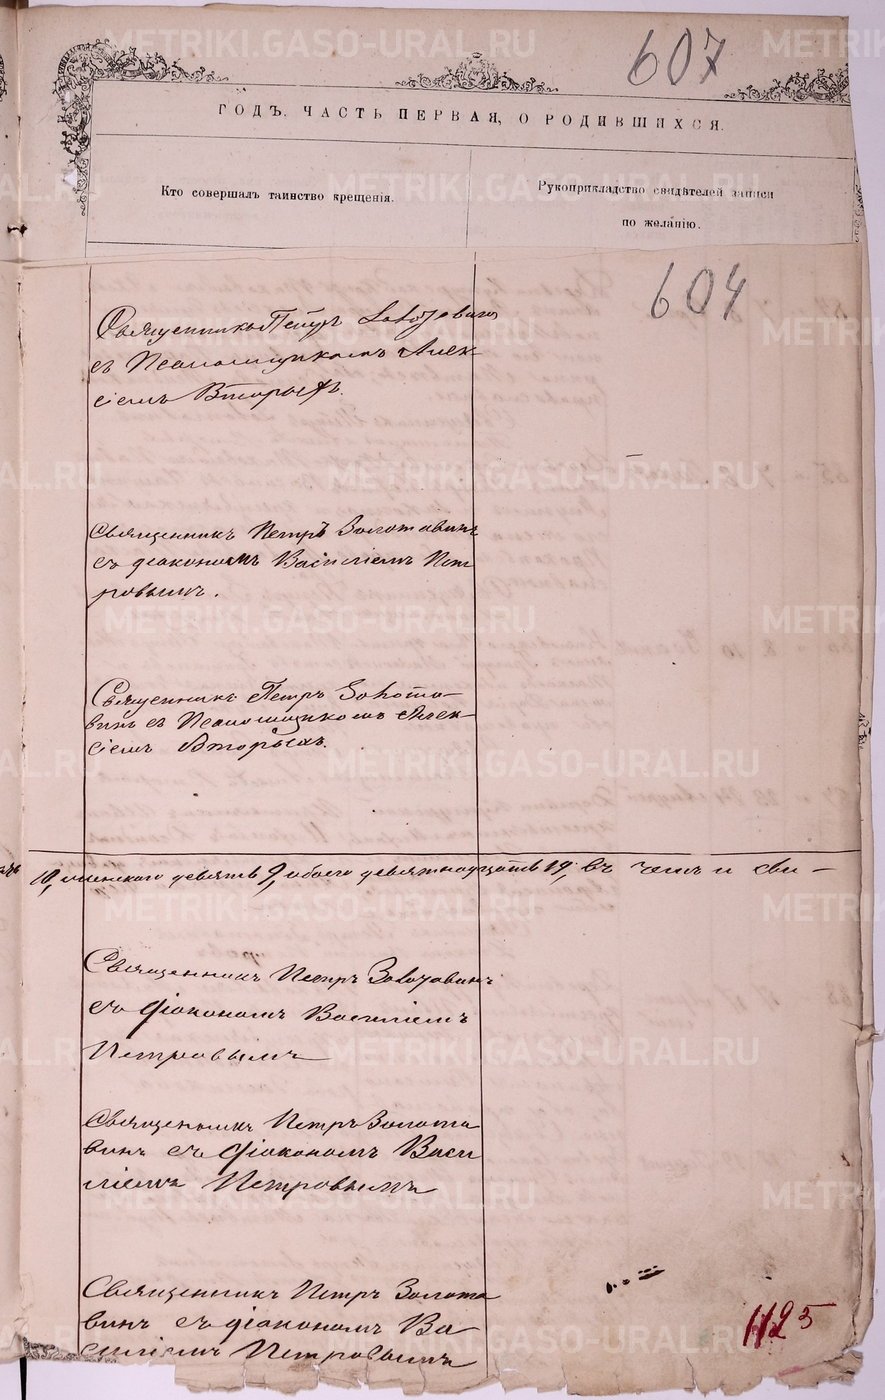 607
ГОДЪ. ЧАСТЬ ПЕРВАЯ, О РОДИВШИХСЯ.
Кто совершалъ таинство крещенія.
Рукоприкладство свидѣтелей записи
по желанію.
604
Священникъ Петръ Золотавинъ
съ Псаломщикомъ Алек-
сіемъ Вторыхъ.
Священникъ Петръ Золотавинъ
съ діакономъ Василіемъ Пет
ровымъ.
Священникъ Петръ Золота-
винъ съ Псаломщикомъ Алек-
сіемъ Вторыхъ.
10, женскаго девять 9, обоего девятнадцать 19, въ чемъ и сви-
Священникъ Петръ Золотавинъ
съ Діакономъ Василіемъ
Петровымъ
Священникъ Петръ Золота
винъ съ Діакономъ Васи
ліемъ Петровымъ
Священникъ Петръ Золота
винъ съ діакономъ Ва
силіемъ Петровымъ
1125
METRIKI.GASO-URAL.RU